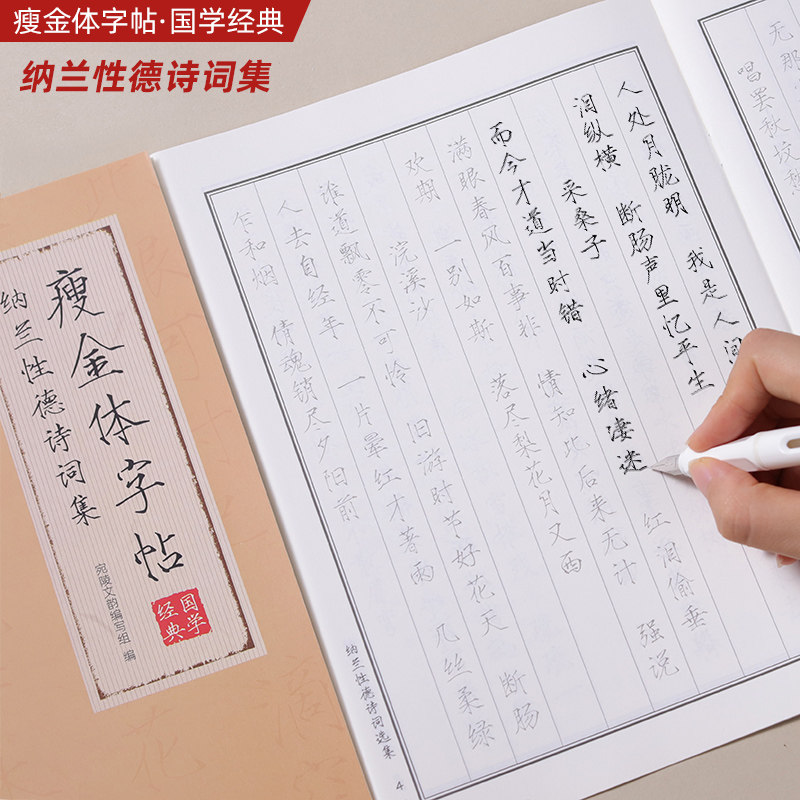 瘦金体字帖·国学经典
纳兰性德诗词集
无那
唱罢秋坟愁
人处月胧明 我是人间
泪纵横 断肠声里忆平生
采桑子
而今才道当时错 心绪凄迷 红泪偷垂
满眼春风百事非 情知此后来无计 强说
欢期 一别如斯 落尽梨花月又西
浣溪沙
谁道飘零不可怜 旧游时节好花天 断肠
人去自经年 一片晕红才著雨 几丝柔绿
乍和烟 倩魂销尽夕阳前
纳兰性德诗词选集
4
瘦金体字帖
纳兰性德诗词集
宛陵文韵编写组 编
国学经典